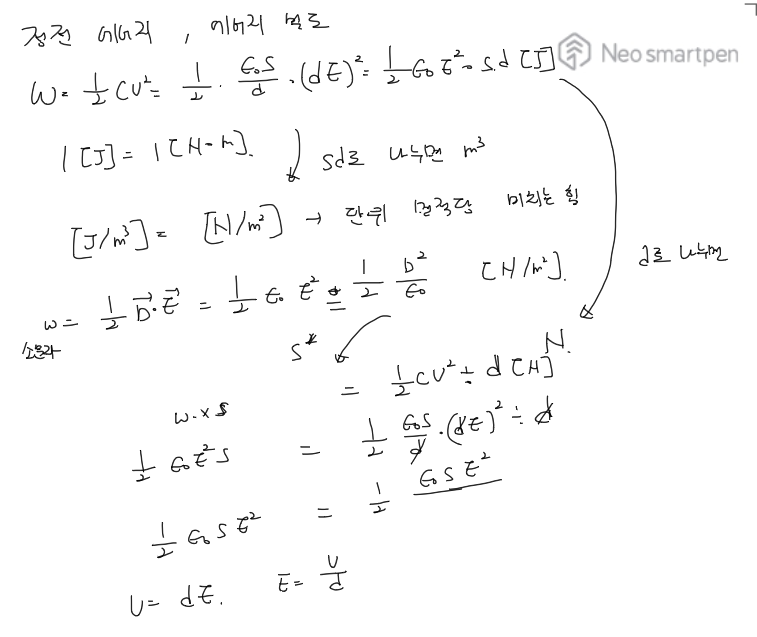 정전 에너지 , 에너지 밀도
Neo smartpen
W = 1/2 CV² = 1/2 · ε₀S/d · (dE)² = 1/2 ε₀ E² · S.d [J]
1 [J] = 1 [N-m]. Sd로 나누면 m³
[J/m³] = [N/m²] → 단위 면적당 미치는 힘
d로 나누면
w = 1/2 D⃗·E⃗ = 1/2 ε₀ E² = 1/2 D²/ε₀ [N/m²].
소문자
S* N.
= 1/2 CV² ÷ d [N]
w · x S
1/2 ε₀E²S = 1/2 ε₀S/d · (dE)² ÷ d
1/2 ε₀ S E² = 1/2 ε₀ S E²
V = dE. E = V/d